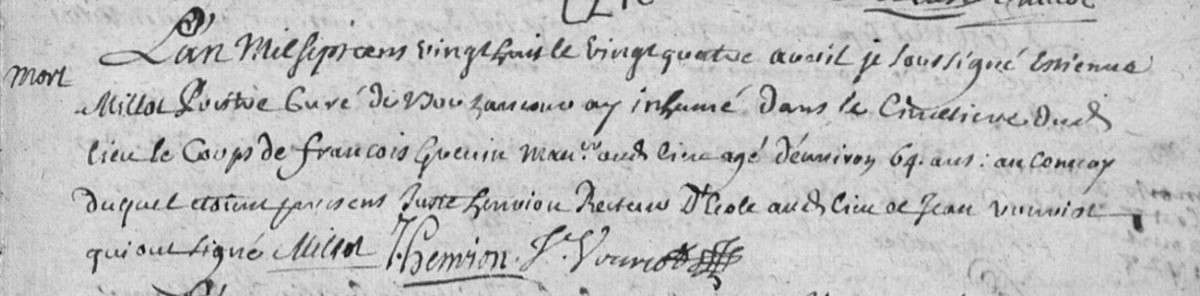 L'an Mil sept cens vingt huit le vingt quatre avril je soussigné Estienne
mort
Millot Prestre Curé de ay inhumé dans le Cimetiere dud
lieu le Corps de francois Guenin Manre aud lieu agé d'environ 64. ans: au convoy
duquel etoient presens Juste henrion Recteur D'Ecole aud lieu et Jean vouriot
qui ont signé Millot J. Henrion. J. Vouriot